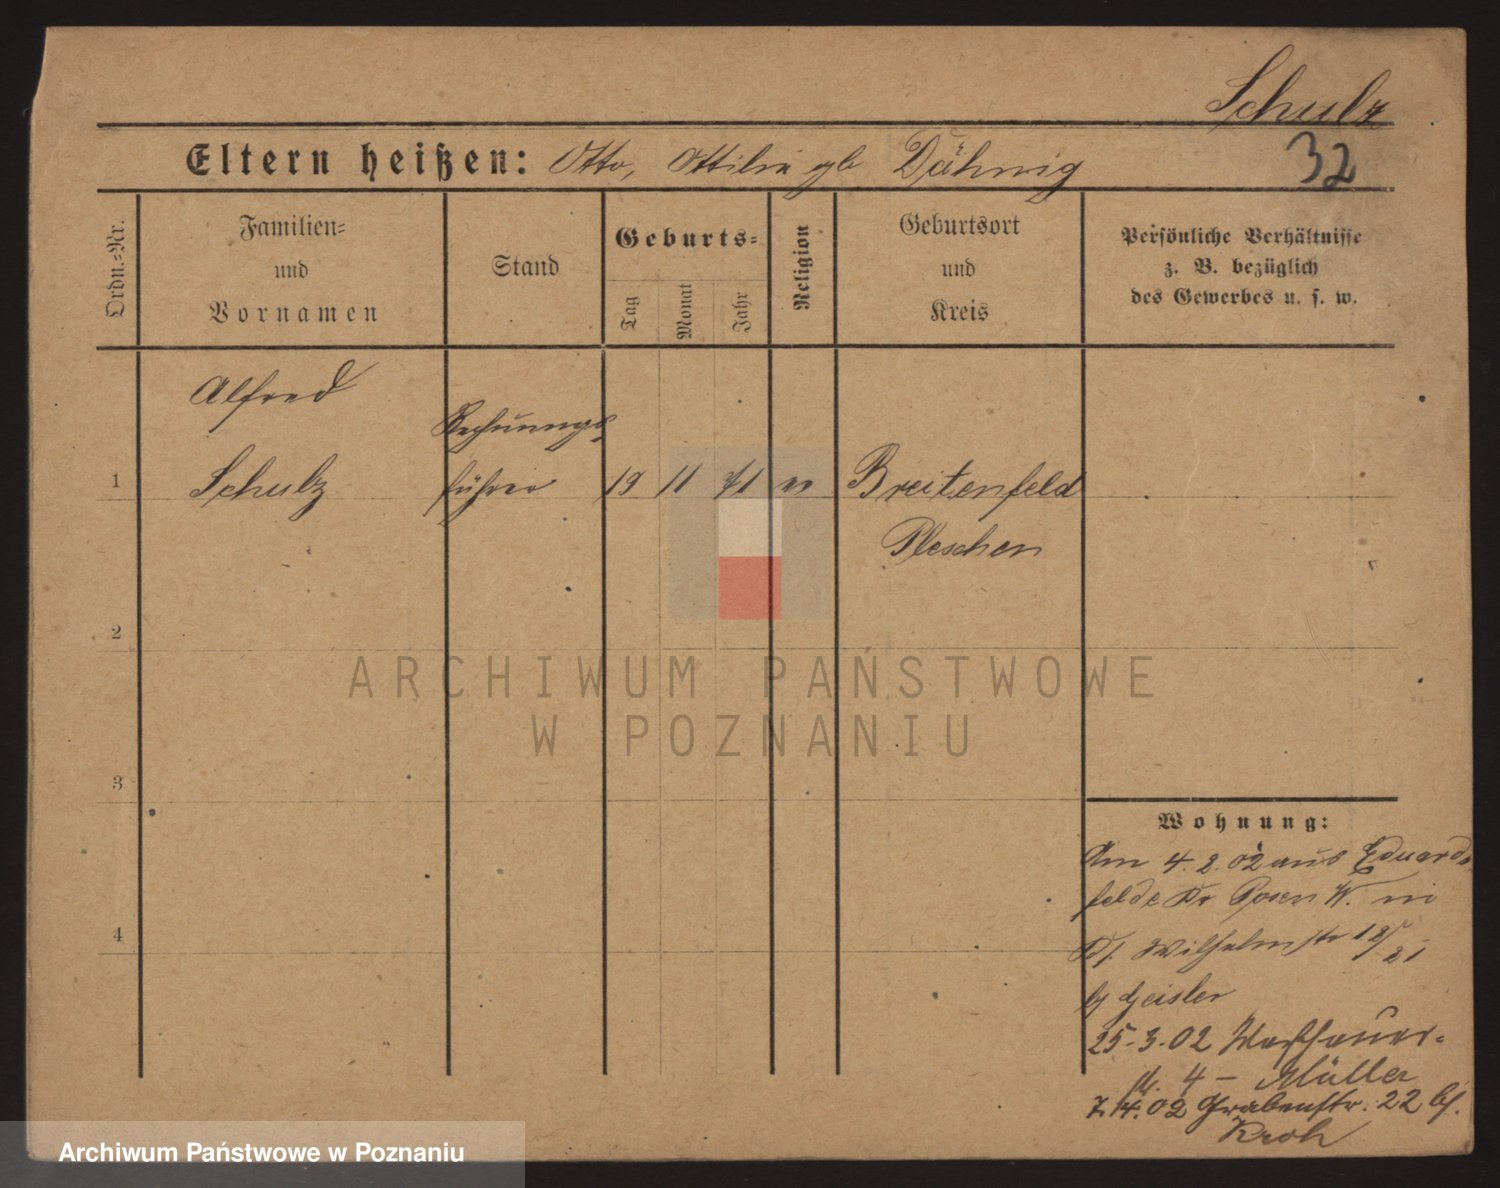 Schulz
Eltern heißen: Otto, Ottilie gb Dähnig
32
Ordn.-Nr.
Familien- und Vornamen
Stand
Geburts-
Tag
Monat
Jahr
Religion
Geburtsort und Kreis
Persönliche Verhältnisse
z. B. bezüglich
des Gewerbes u. s. w.
Alfred
Rechnungs
1 Schulz führer 19 11 71 ev Breitenfeld
Pleschen
2
ARCHIWUM PAŃSTWOWE
W POZNANIU
3
Wohnung:
Am 4. 2. 02 aus Eduards
felde Kr Posen W. in
Wilhelmstr 18/21
bj Geisler
25-3-02 Warschauer-
str. 4 - Müller
7.4.02 Grabenstr. 22 bj.
Kroh
4
Archiwum Państwowe w Poznaniu